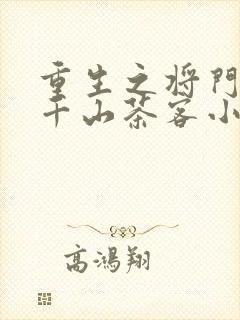 重生之将門
千山茶客小
高鴻翔